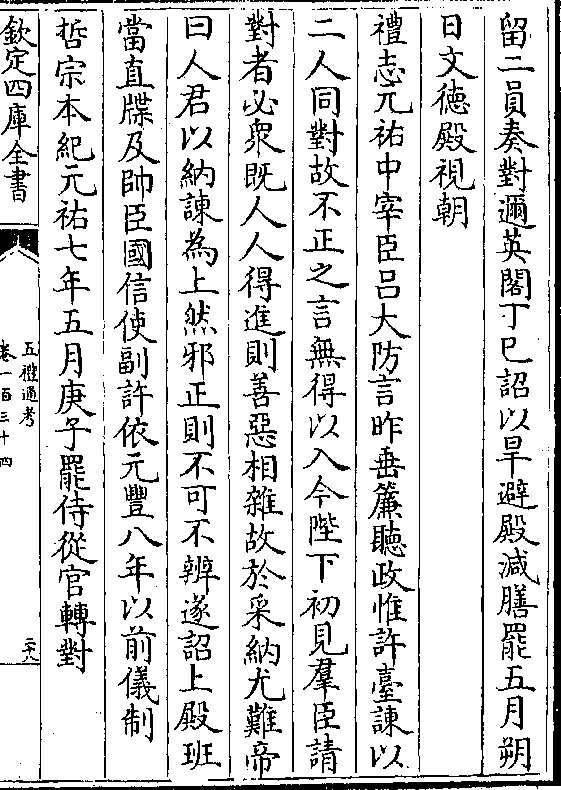 留二員奏對邇英閣丁巳詔以旱避殿減膳罷五月朔
日文德殿視朝
禮志元祐中宰臣呂大防言昨垂簾聽政惟許臺諫以
二人同對故不正之言無得以入今陛下初見羣臣請
對者必衆既人人得進則善惡相雜故於采納尤難帝
曰人君以納諫為上然邪正則不可不辨遂詔上殿班
當直牒及帥臣國信使副許依元豐八年以前儀制
哲宗本紀元祐七年五月庚子罷侍從官轉對
欽定四庫全書
五禮通考
卷一百三十四
二八